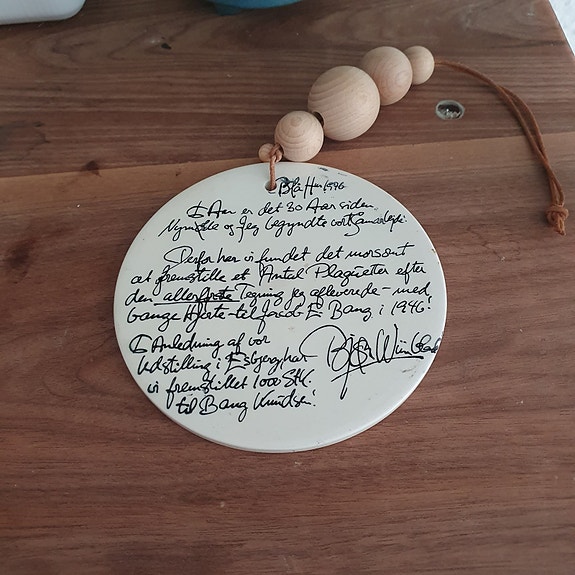 Blå Hus 1996
I Aar er det 30 Aar siden
Nymølle og Jeg begyndte vort Samarbejde.
Derfor har vi fundet det morsomt
at fremstille et Antal Plaquetter efter
den allerførste Tegning jeg afleverede - med
bange Hjerte - til Jacob E Bang i 1946!
I Anledning af vor
Udstilling i Esbjerg har
vi fremstillet 1000 Stk.
til Bang Knudsen!
Bjørn Wiinblad